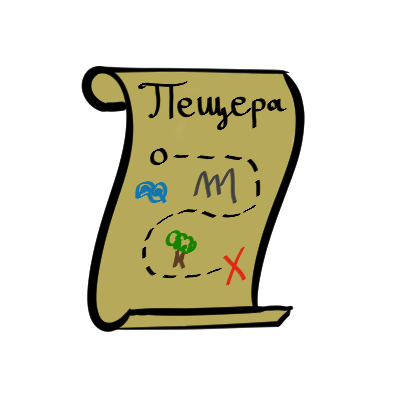 Пещера